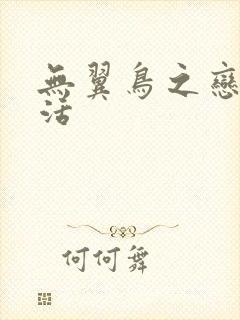 無翼鳥之戀
活
何何舞